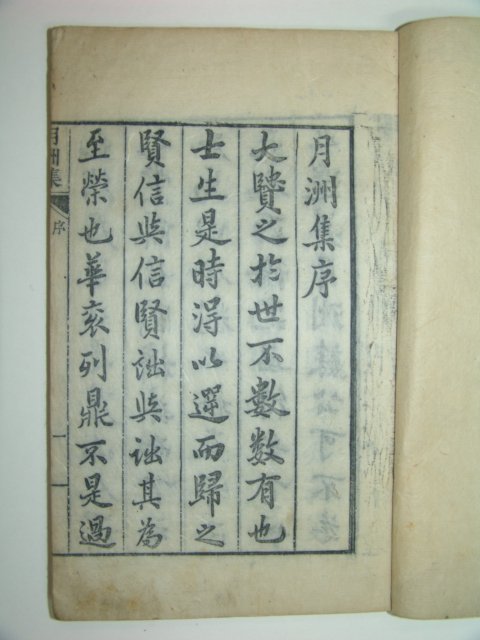 月洲集序
大賢之於世不數數有也
士生是時得以遝而歸之
賢信與信賢詘與詘其為
至榮也華衮列鼎不是過
月洲集 序 一